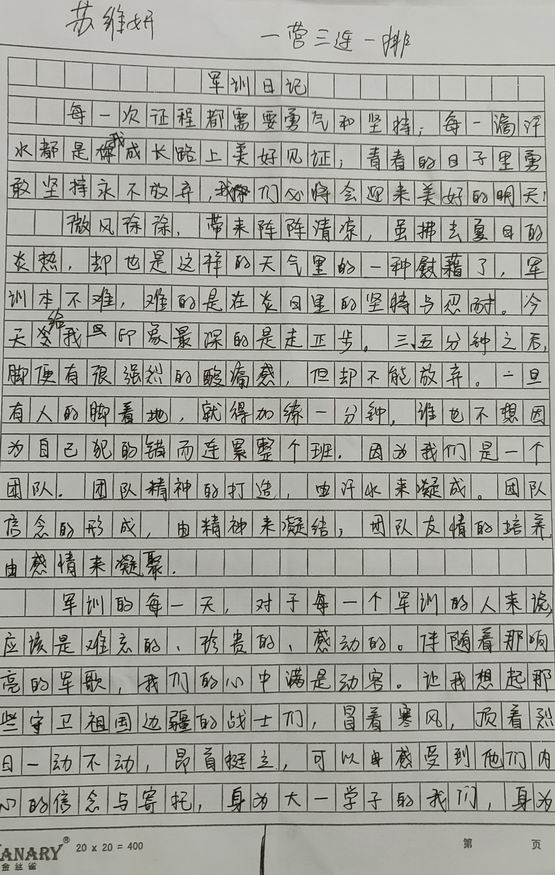 苏维妍
一营三连一排
军训日记
每一次征程都需要勇气和坚持，每一滴汗
水都是我成长路上美好见证，青春的日子里勇
敢坚持永不放弃，我们必将会迎来美好的明天!
微风徐徐，带来阵阵清凉，虽拂去夏日的
炎热，却也是这样的天气里的一种慰藉了，军
训本不难，难的是在炎日里的坚持与忍耐。今
天给我印象最深的是走正步。三、五分钟之后，
脚便有很强烈的酸痛感，但却不能放弃。一旦
有人的脚着地，就得加练一分钟，谁也不想因
为自己犯的错而连累整个班．因为我们是一个
团队．团队精神的打造，由汗水来凝成。团队
信念的形成，由精神来凝结，团队友情的培养，
由感情来凝聚．
军训的每一天，对于每一个军训的人来说，
应该是难忘的、珍贵的、感动的。伴随着那响
亮的军歌，我们的心中满是动容。让我想起那
些守卫祖国边疆的战士们，冒着寒风，顶着烈
日一动不动，昂首挺立，可以感受到他们内
心的信念与寄托，身为大一学子的我们，身为
ANARY® 20 x 20 = 400
金丝雀
第 页